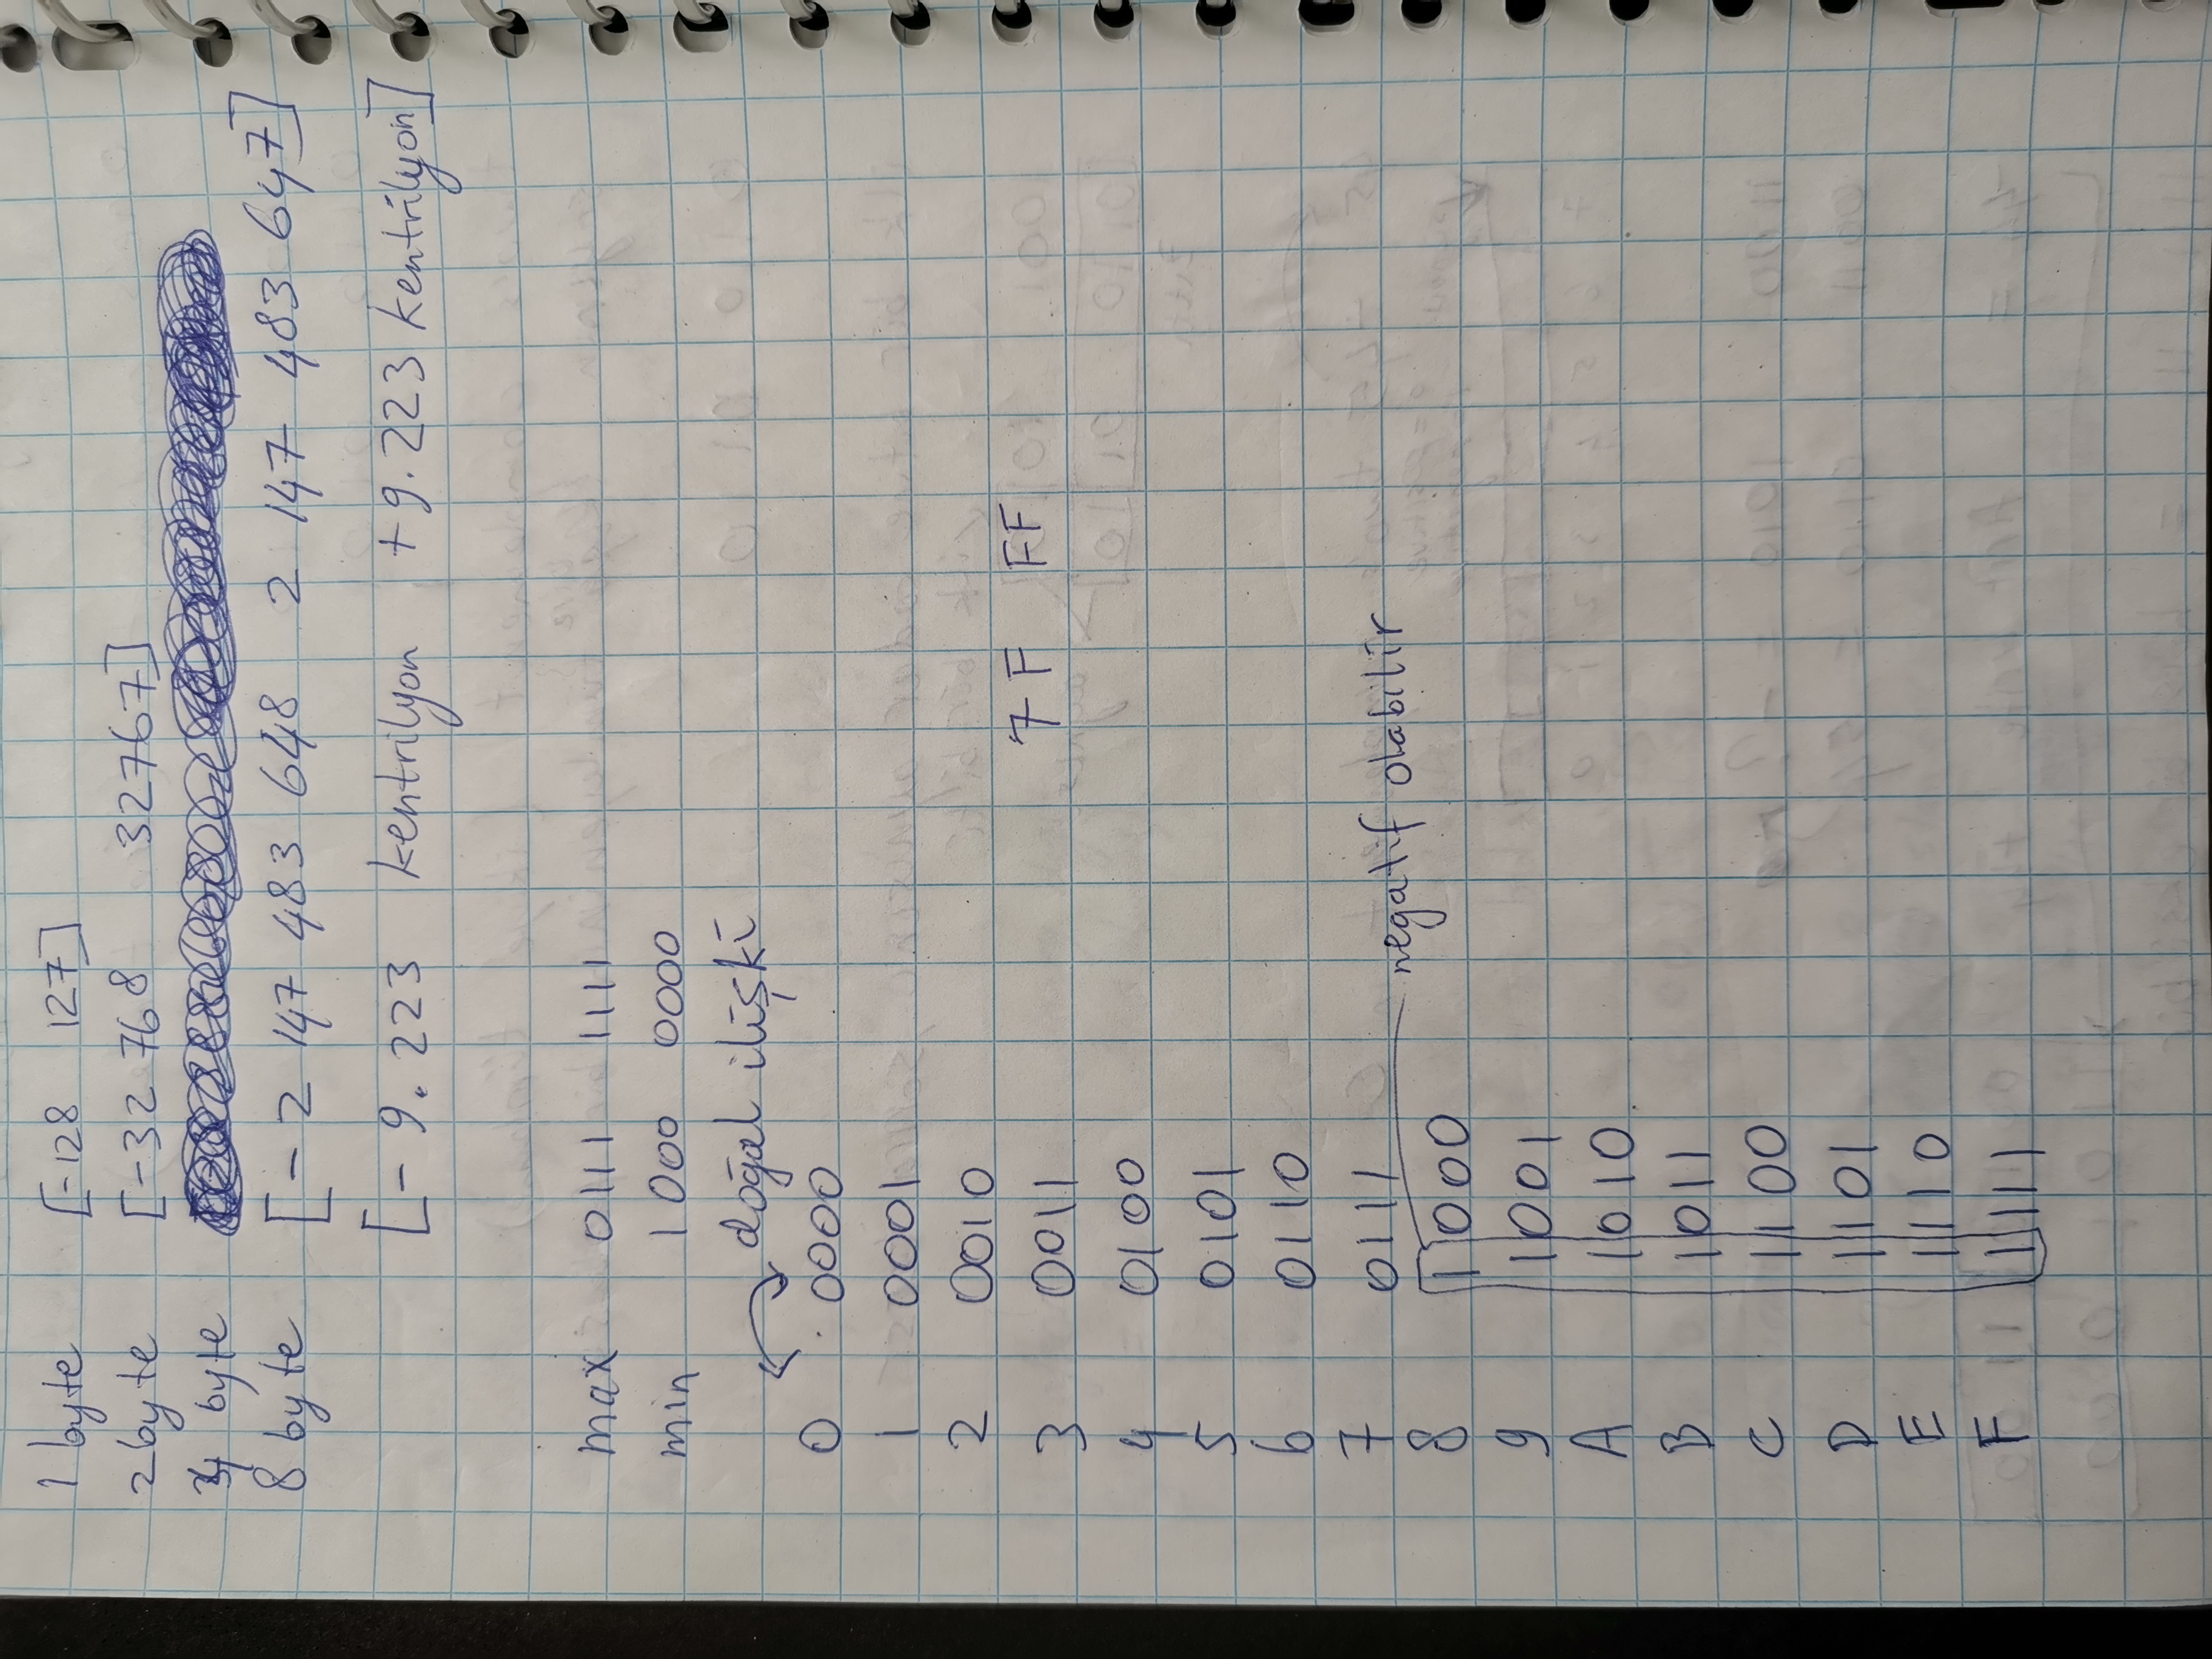 1 byte [-128 127]
2 byte [-32 768 32767]
4 byte
8 byte [- 2 147 483 648 2 147 483 647]
[- 9.223 kentrilyon +9.223 kentrilyon]
max 0111 1111
min 1000 0000
doğal ilişki
0 0000
1 0001
2 0010
7F FF
3 0011
4 0100
5 0101
6 0110
7 0111
negatif olabilir
8 1000
9 1001
A 1010
B 1011
C 1100
D 1101
E 1110
F 1111